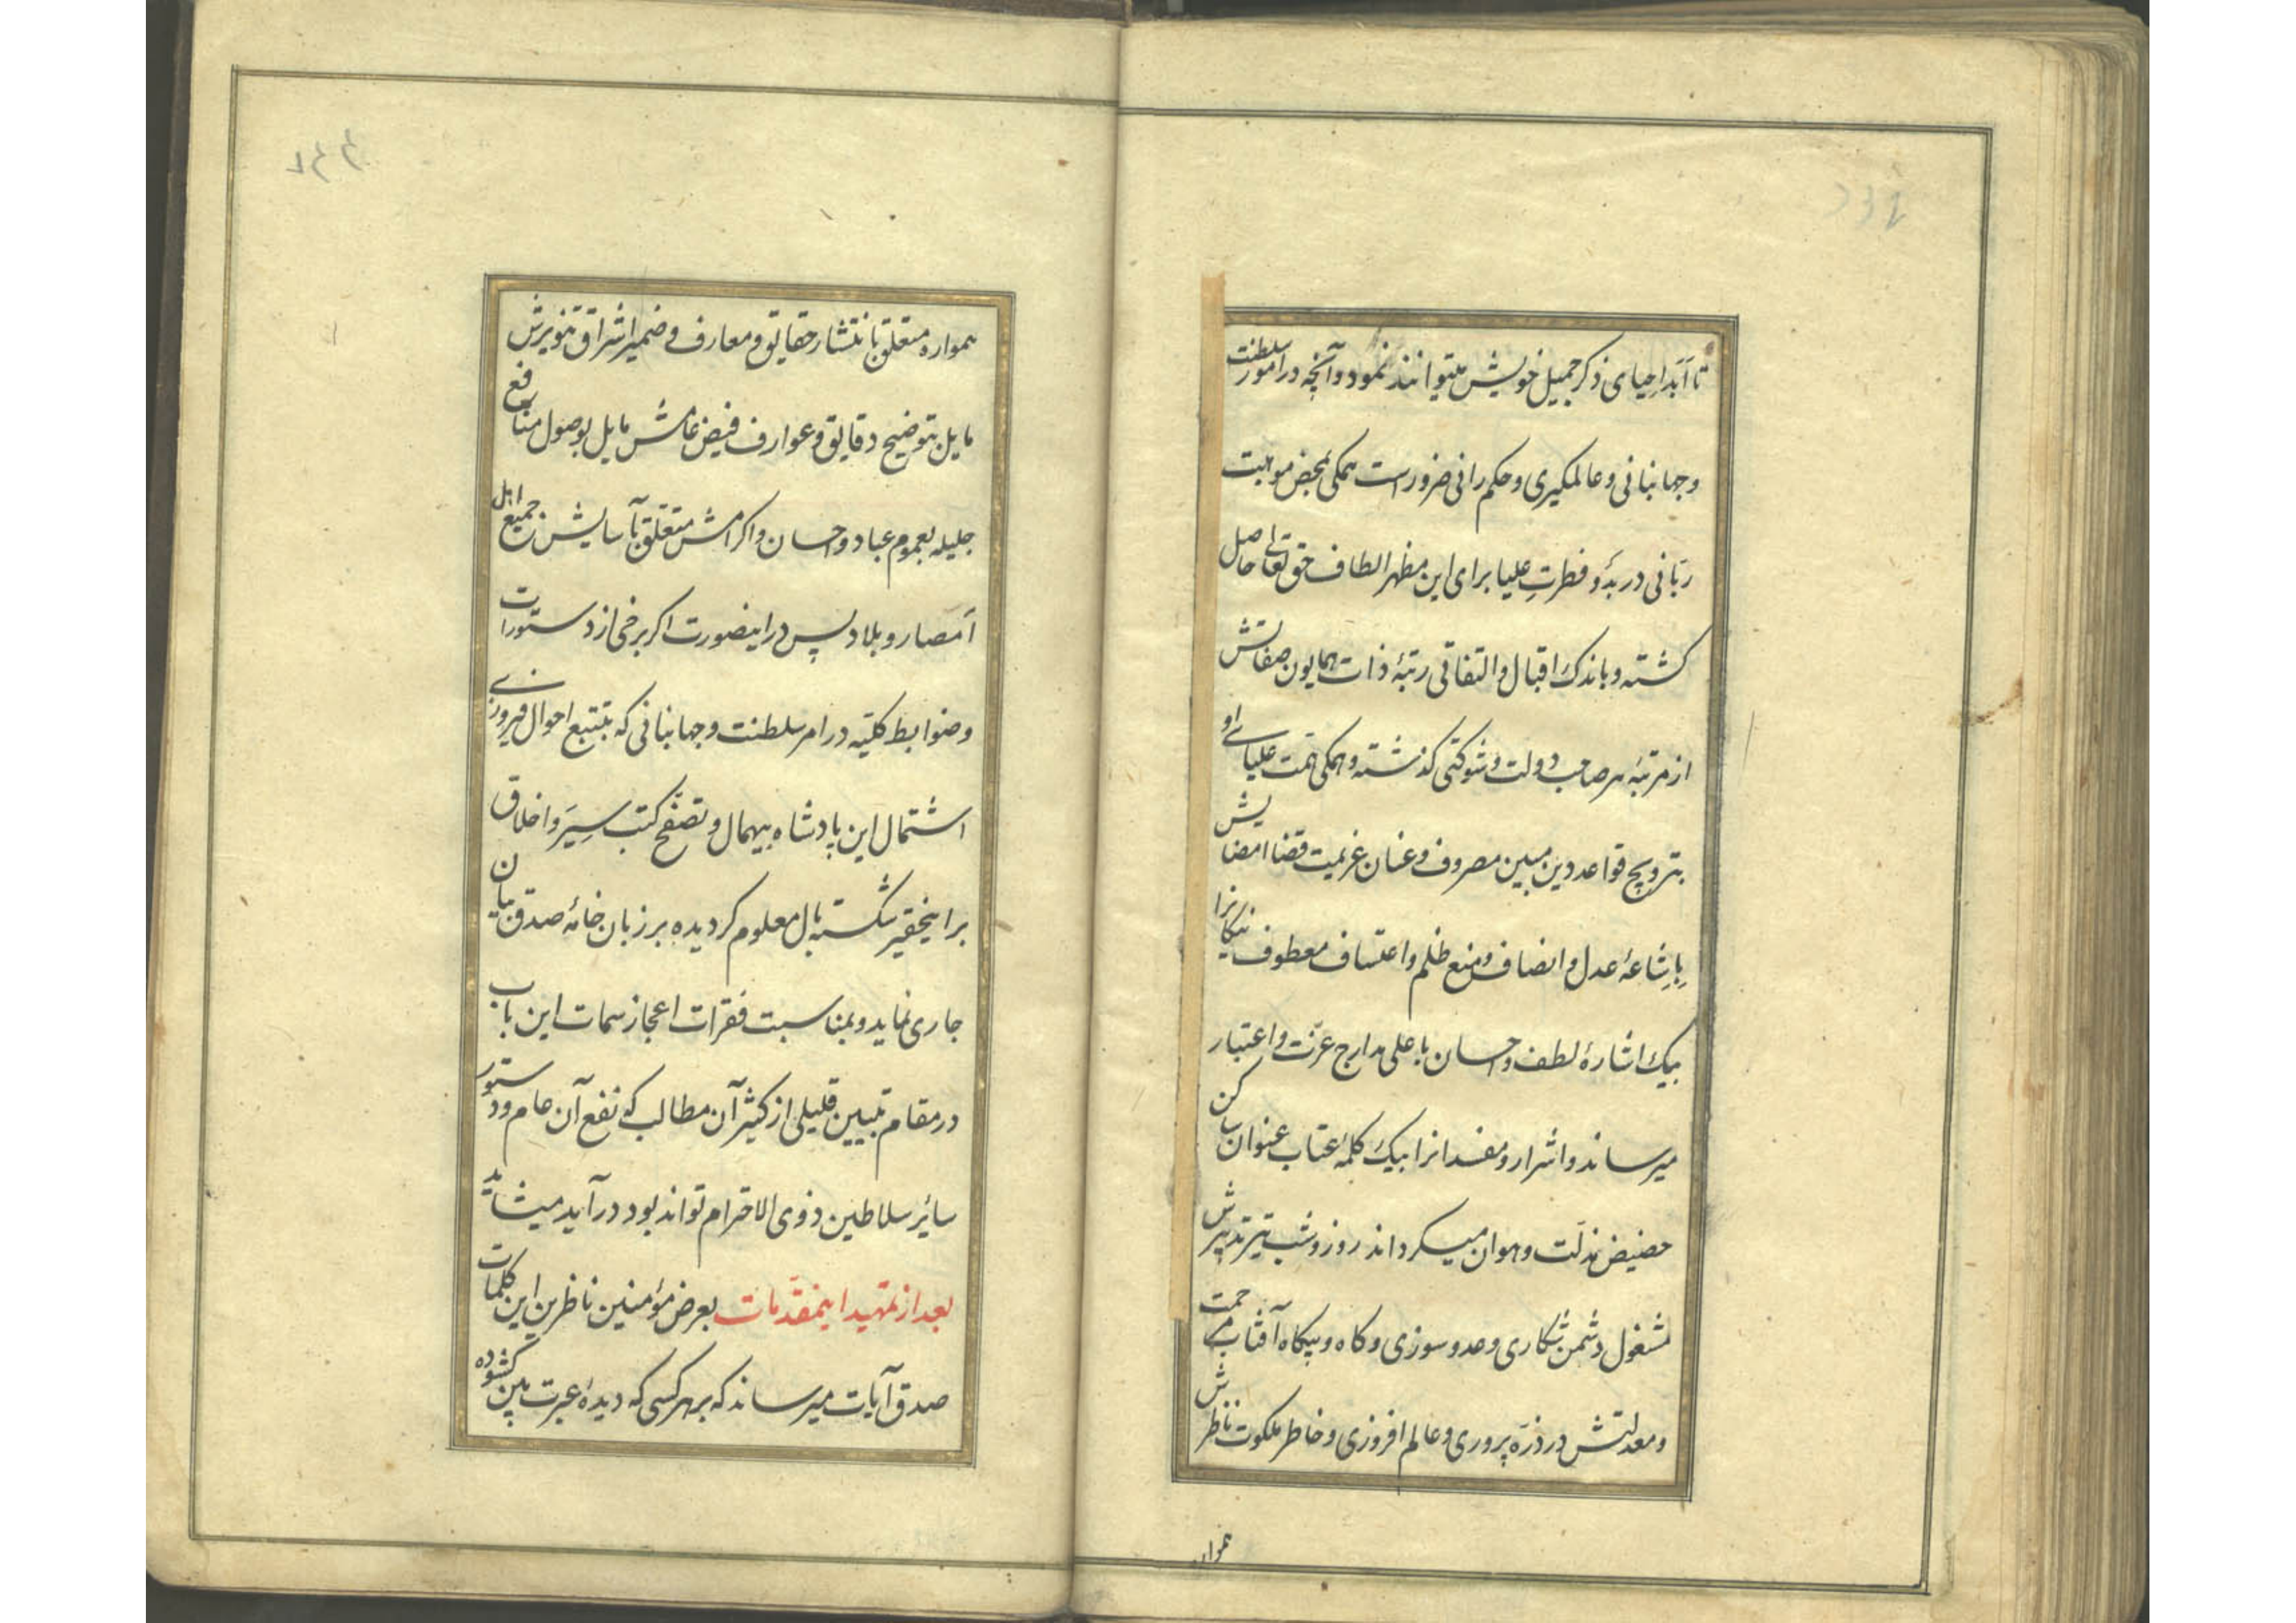 تا ابد احیای ذکر جمیل خویش میتوانند نمود و آنچه در امور سلطنت
و جهانبانی و عالمگیری و حکم رانی ضرور است همکی بمحض موهبت
ربّانی در بدؤ فطرتِ علیا برای این مظهر الطاف حق تعالی حاصل
کشته و باندک اقبال و التفاتی رتبهٔ ذات همایون صفاتش
از مرتبهٔ هر صاحب دولت و شوکتی کذشته و همکی همّت علیای او
بترویج قواعد دین مبین مصروف و عنان عزیمت قضا امضایش
باشاعهٔ عدل و انصاف و منع ظلم و اعتساف معطوف نیکانرا
بیک اشارهٔ لطف و احسان باعلی مدارج عزّت و اعتبار
میرساند و اشرار و مفسدانرا بیک کلمهٔ عتاب عنوان ساکن
حضیض مذلّت و هوان میکرداند روز و شب تیر تدبیرش
مشغول دشمن شکاری و عدو سوزی و کاه و بیکاه آفتاب مرحمت
و معدلتش در ذرّه پروری و عالم افروزی و خاطر ملکوت ناظرش
همواره
همواره متعلق بانتشار حقایق و معارف و ضمیر اشراق تنویرش
مایل بتوضیح دقایق و عوارف فیض عامش مایل بوصول منافع
جلیله بعموم عباد و احسان و اکرامش متعلّق بآسایش جمیع اهل
اَمصار و بلاد پس در اینصورت اکر برخی از دستورات
و ضوابط کلیّه در امر سلطنت و جهانبانی که بتتبع احوال فیروزی
اشتمال این پادشاه بیهمال و تصفّح کتب سِیَر و اخلاق
بر اینحقیر شکسته بال معلوم کردیده بر زبان خامهٔ صدق بیان
جاری نماید و بمناسبت فقرات اعجاز سمات این باب
در مقام تبیین قلیلی از کثیر آن مطالب که نفع آن عام و دستور
سائر سلاطین ذوی الاحترام تواند بود در آید میشاید
بعد از تمهید اینمقدّمات بعرض مؤمنین ناظرین این کلمات
صدق آیات میرساند که بر هر کسی که دیدهٔ عبرت بین کشوده